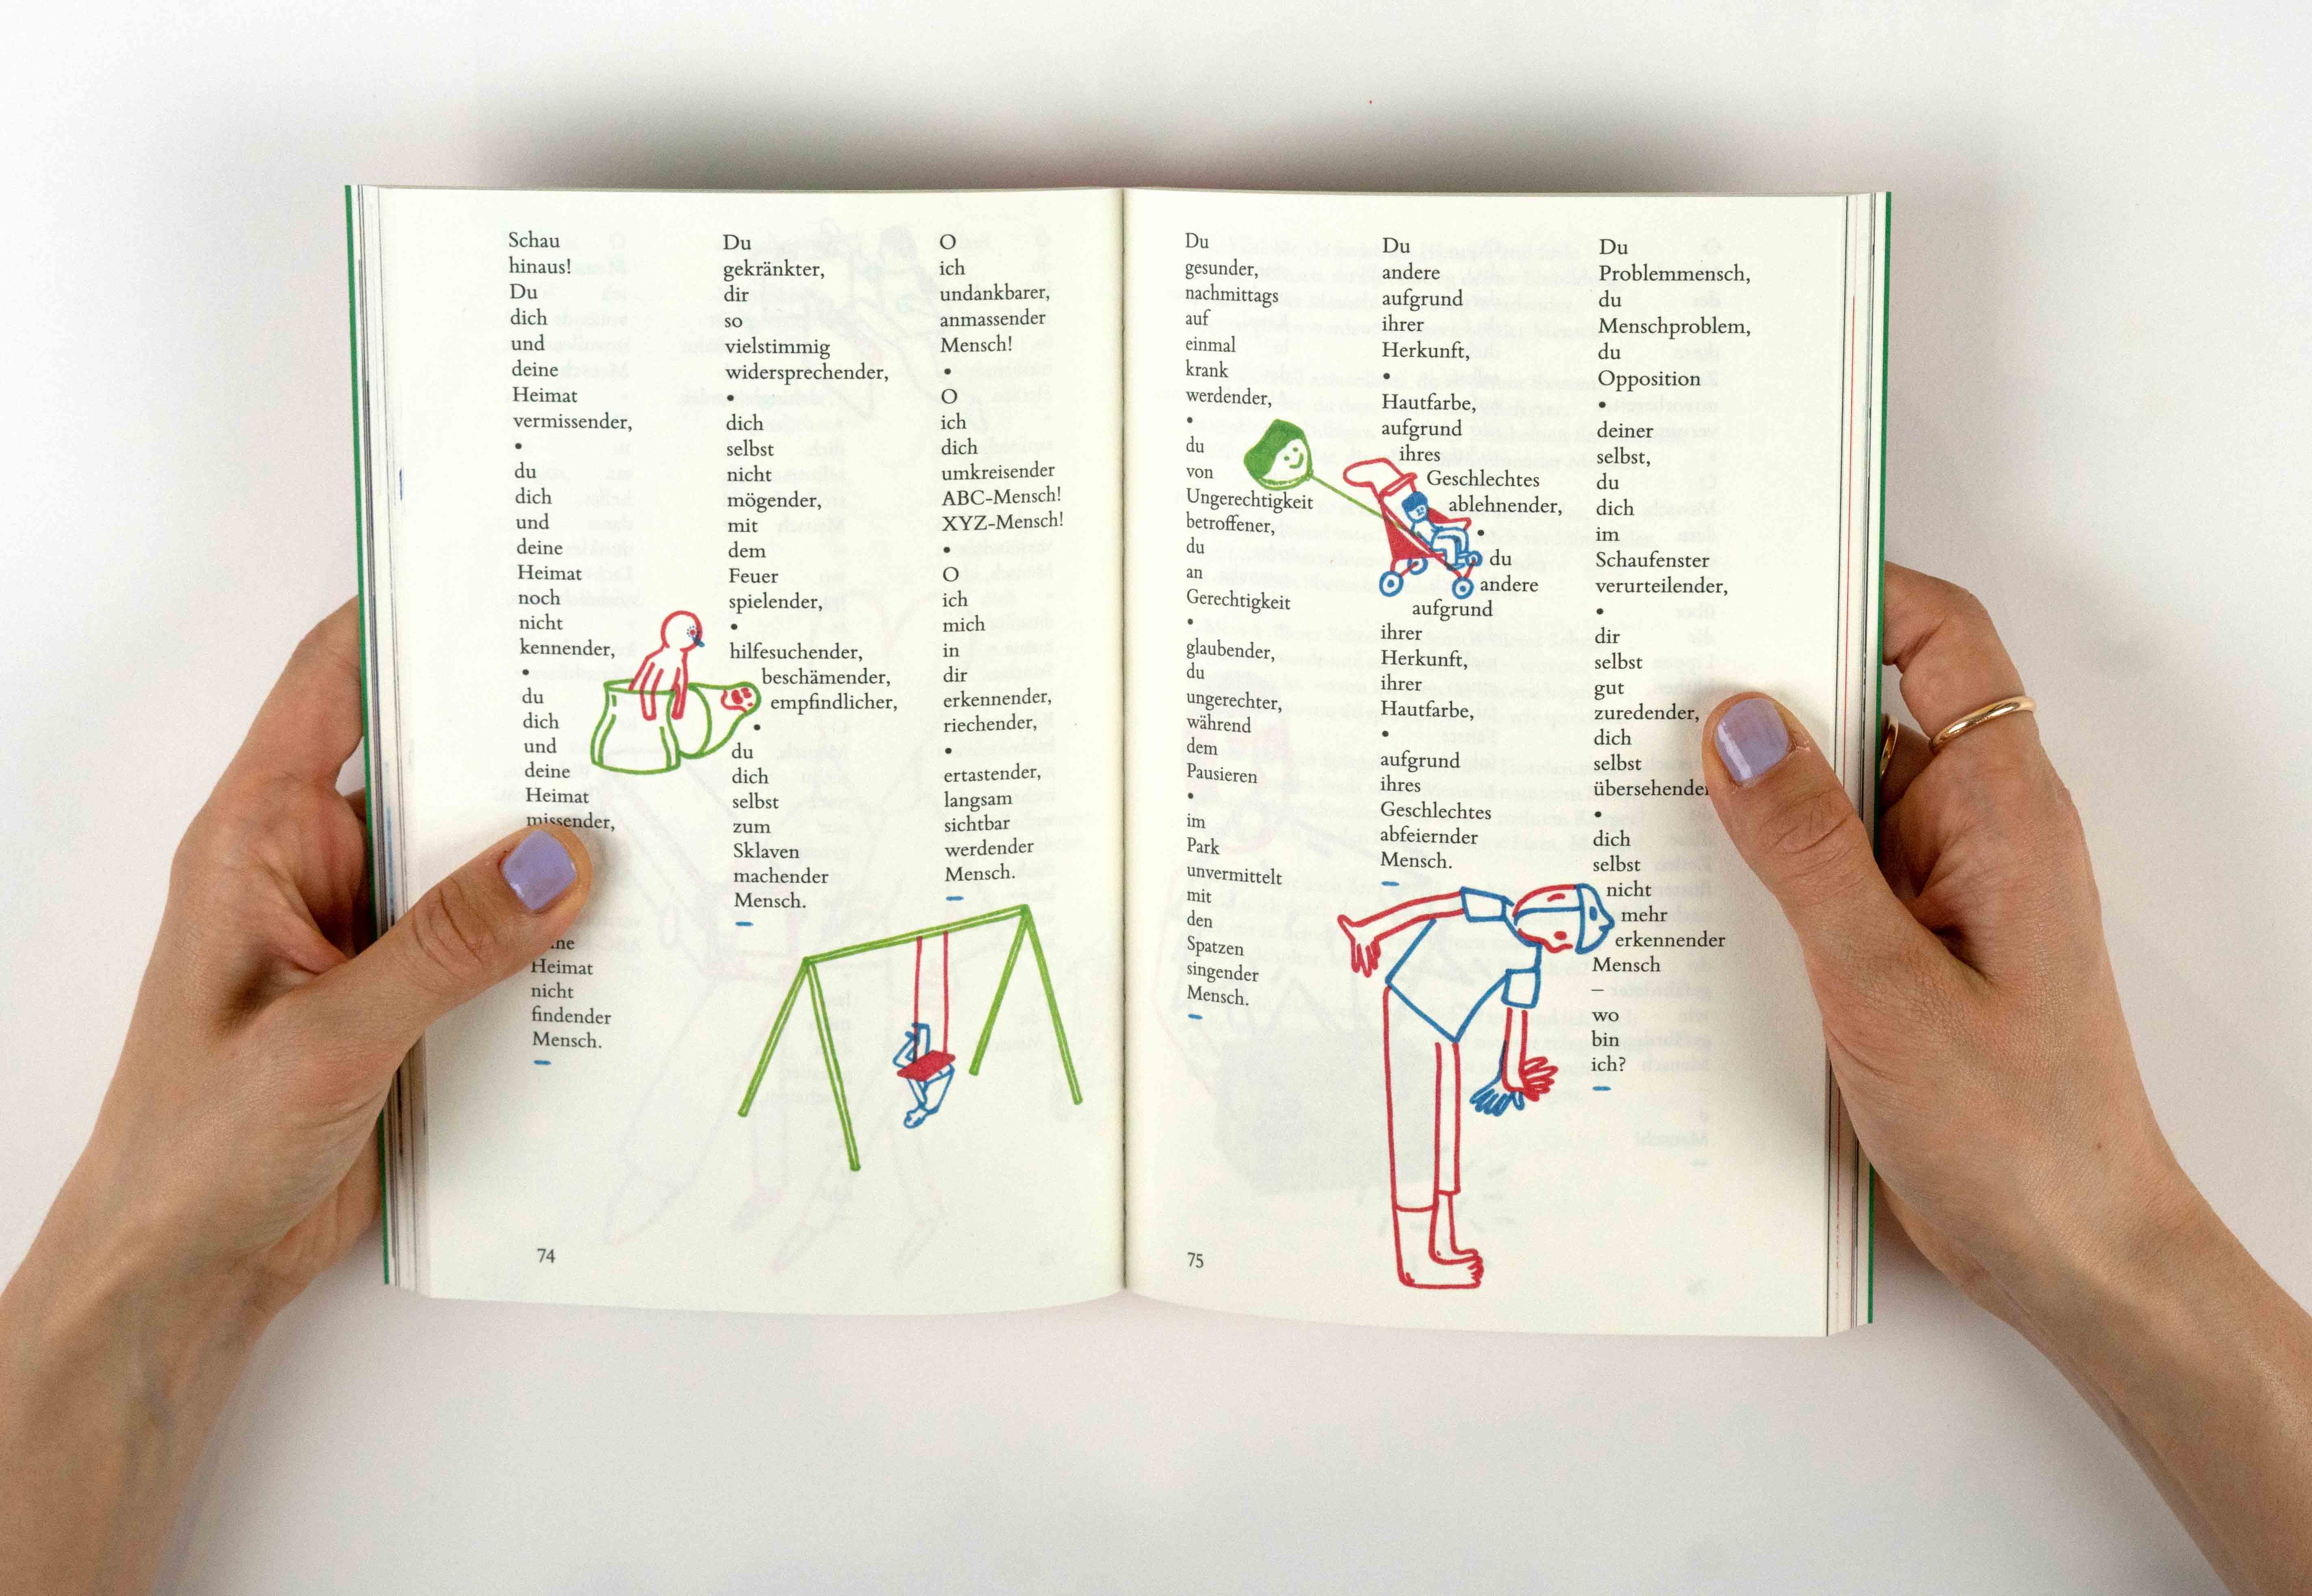 Schau
hinaus!
Du
dich
und
deine
Heimat
vermissender,
•
du
dich
und
deine
Heimat
noch
nicht
kennender,
•
du
dich
und
deine
Heimat
missender,
Heimat
nicht
findender
Mensch.
–
Du
gekränkter,
dir
so
vielstimmig
widersprechender,
•
dich
selbst
nicht
mögender,
mit
dem
Feuer
spielender,
•
hilfesuchender,
beschämender,
empfindlicher,
•
du
dich
selbst
zum
Sklaven
machender
Mensch.
–
O
ich
undankbarer,
anmassender
Mensch!
•
O
ich
dich
umkreisender
ABC-Mensch!
XYZ-Mensch!
•
O
ich
mich
in
dir
erkennender,
riechender,
•
ertastender,
langsam
sichtbar
werdender
Mensch.
–
74
Du
gesunder,
nachmittags
auf
einmal
krank
werdender,
•
du
von
Ungerechtigkeit
betroffener,
du
an
Gerechtigkeit
•
glaubender,
du
ungerechter,
während
dem
Pausieren
•
im
Park
unvermittelt
mit
den
Spatzen
singender
Mensch.
–
Du
andere
aufgrund
ihrer
Herkunft,
•
Hautfarbe,
aufgrund
ihres
Geschlechtes
ablehnender,
•
du
andere
aufgrund
ihrer
Herkunft,
ihrer
Hautfarbe,
•
aufgrund
ihres
Geschlechtes
abfeiernder
Mensch.
–
Du
Problemmensch,
du
Menschproblem,
du
Opposition
•
deiner
selbst,
du
dich
im
Schaufenster
verurteilender,
•
dir
selbst
gut
zuredender,
dich
selbst
•
dich
selbst
nicht
mehr
erkennender
Mensch
–
wo
bin
ich?
–
75